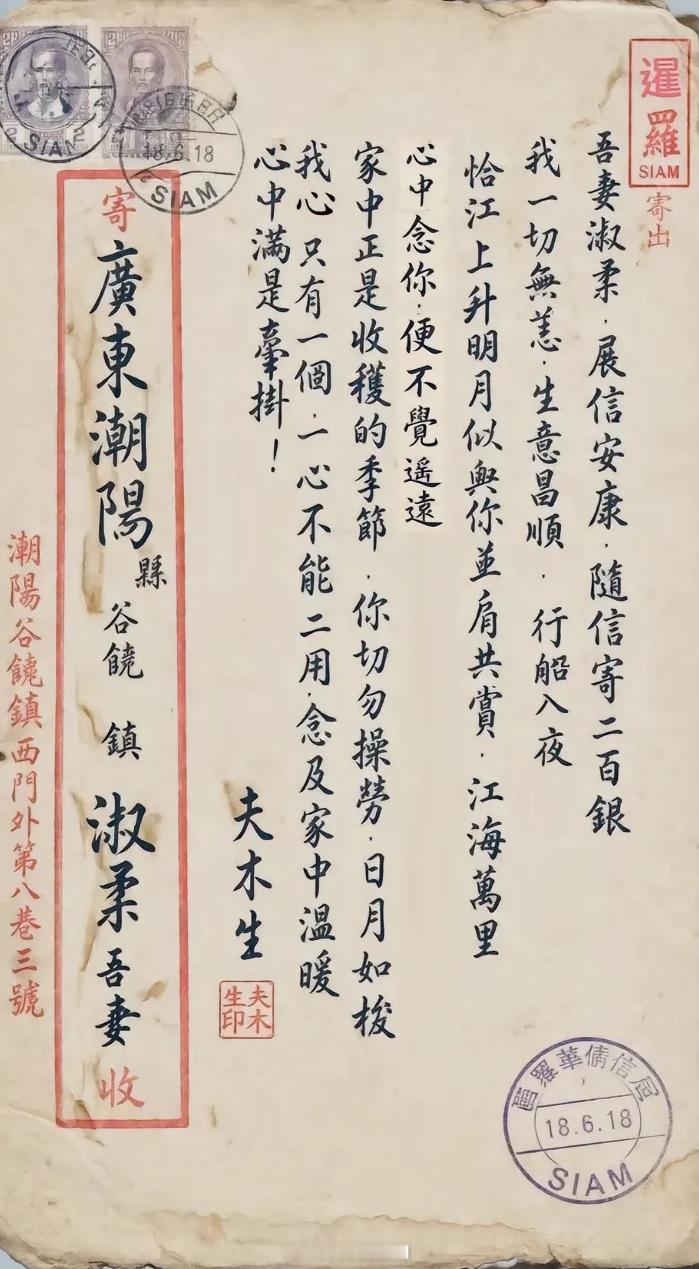 暹羅
SIAM
寄出
吾妻淑柔.展信安康.隨信寄二百銀
我一切無恙.生意昌順.行船八夜
恰江上升明月似與你並肩共賞.江海萬里
心中念你.便不覺遥遠
家中正是收穫的季節.你切勿操勞.日月如梭
我心只有一個.一心不能二用.念及家中温暖
心中滿是牽掛!
夫木生
夫木
生印
寄
廣東潮陽縣谷饒鎮淑柔吾妻
收
潮陽谷饒鎮西門外第八巷三號
SIAM
18.6.18
SIAM
羅華僑信局
18.6.18
SIAM